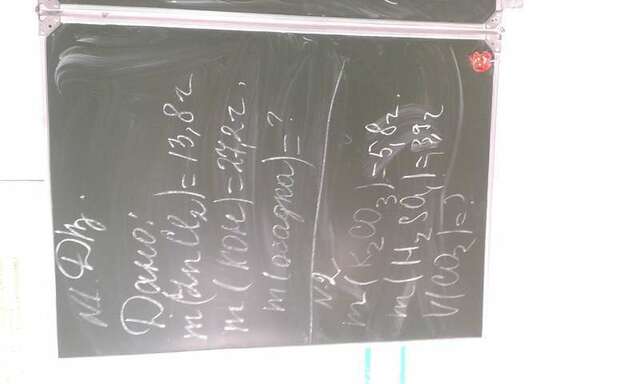 N1. Дз.
Дано:
m(ZnCl₂)=13,8г
m(KOH)=27,2г.
m(осадка)=?
N2
m(K₂CO₃)=5,8г.
m(H₂SO₄)=3,9г
V(CO₂)=?